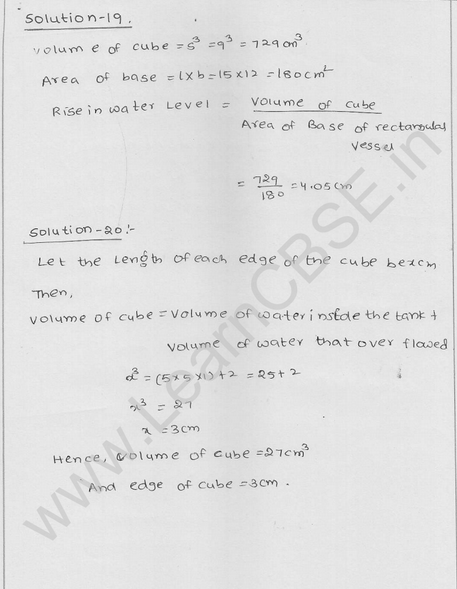 Solution-19.
Volume of cube = s³ = 9³ = 729cm³
Area of base = l×b = 15×12 = 180cm²
Rise in water Level = Volume of cube
Area of Base of rectangular
vessel
= 729/180 = 4.05cm
Solution-20:-
Let the Length of each edge of the cube be x cm
Then,
Volume of cube = Volume of water inside the tank +
Volume of water that over flowed
x³ = (5×5×1)+2 = 25+2
x³ = 27
x = 3cm
Hence, Volume of cube = 27cm³
And edge of cube = 3cm.
www.LearnCBSE.in